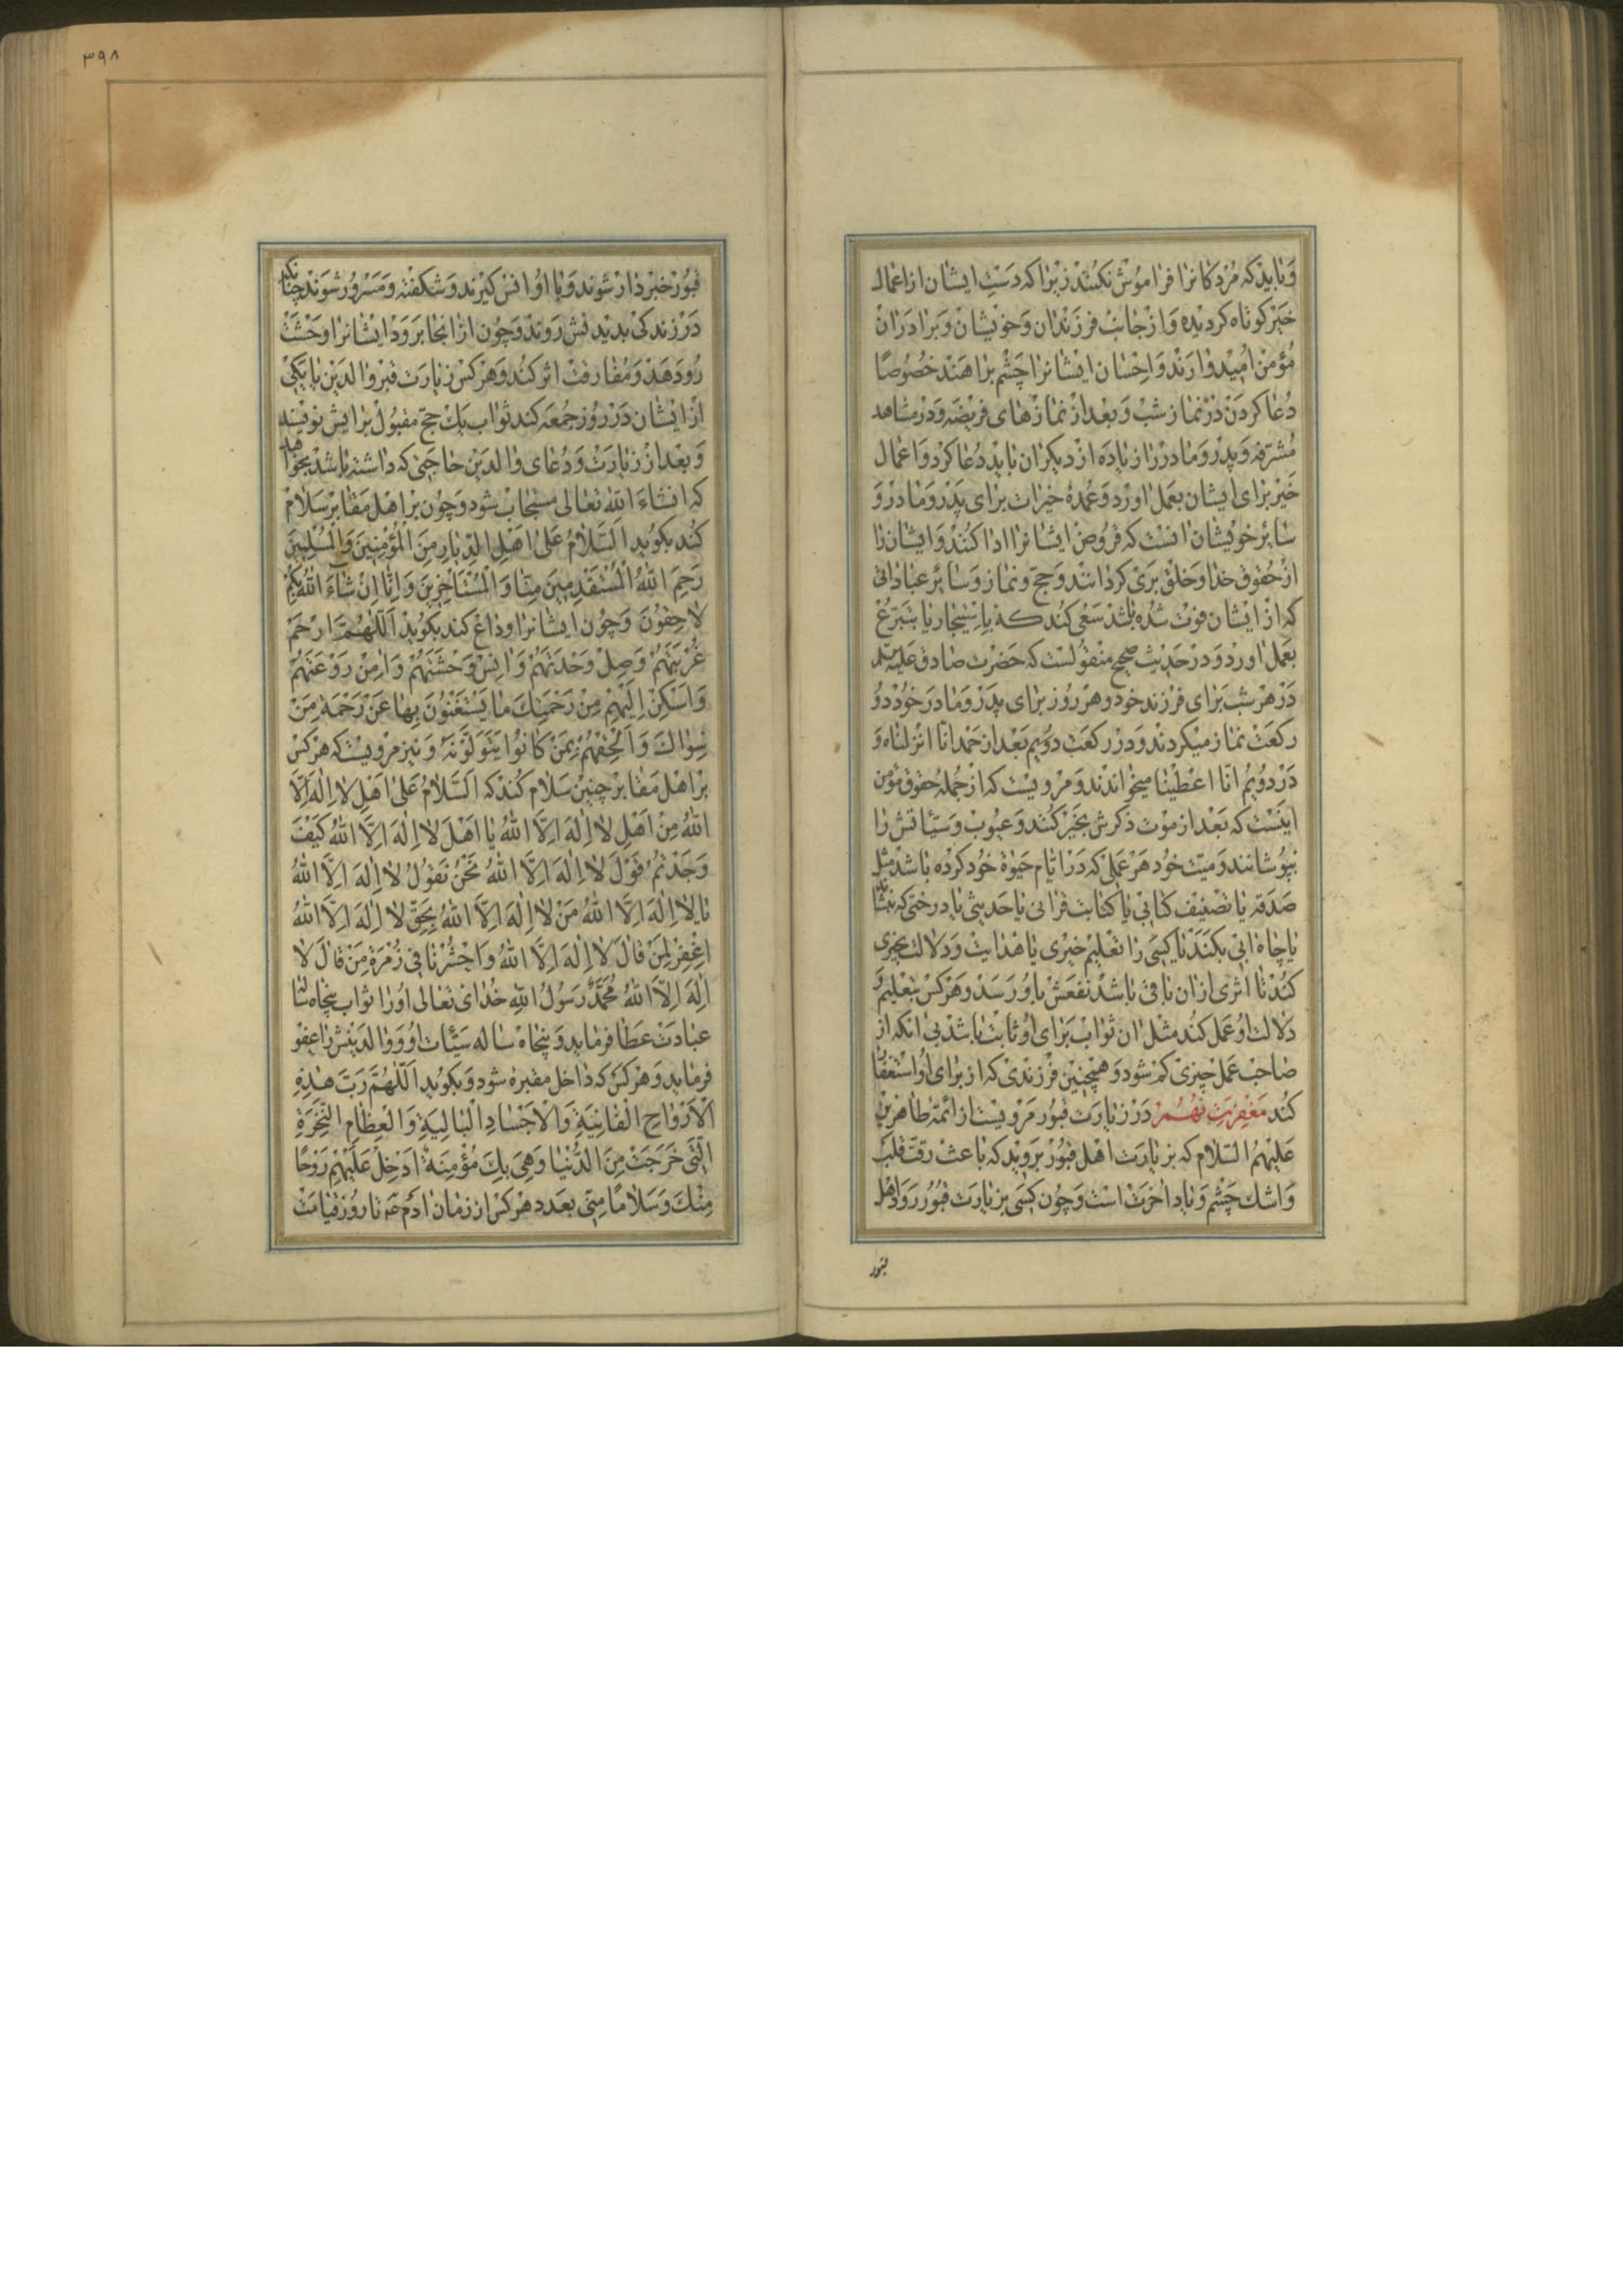 و باید که مردکانرا فراموش نکنند زیرا که دست ایشان از اعمال
خیر کوتاه کردیده و از جانب فرزندان و خویشان و برادران
مؤمن امیدوارند و احسان ایشانرا چشم براهند خصوصًا
دعا کردن در نماز شب و بعد از نمازهای فریضه و در مشاهد
مشرفه و پدر و مادر را زیاده از دیکران باید دعا کرد و اعمال
خیر برای ایشان بعمل اورد و عمدهٔ خیرات برای پدر و مادر و
سایر خویشان انست که قروض ایشانرا ادا کنند و ایشان را
از حقوق خدا و خلق بری کردانند و حج و نماز و سایر عباداتی
که از ایشان فوت شده باشد سعی کند که باستیجار یا بتبرع
بعمل اورد و در حدیث صحیح منقولست که حضرت صادق علیه
در هر شب برای فرزند خود و هر روز برای پدر و مادر خود دو
رکعت نماز میکردند و در رکعت دویم بعد از حمد انّا انزلناه و
در دویم انّا اعطینا میخواندند و مرویست که از جملهٔ حقوق مؤمن
اینست که بعد از موت ذکرش بخیر کنند و عیوب و سیّئاتش را
بپوشانند و میت خود هر عملی که در ایّام حیوة خود کرده باشد مثل
صدقه یا تصنیف کتابی یا کتابت قرانی یا حدیثی یا درختی که بنشاند
یا چاه ابی بکند یا کسی را تعلیم خیری یا هدایت و دلالت بخیری
کند تا اثری از ان باقی باشد نفعش باو رسد و هر کس بتعلیم و
دلالت او عمل کند مثل ان ثواب برای او ثابت باشد بی انکه از
صاحب عمل چیزی کم شود و همچنین فرزندی که از برای او استغفار
کند مغفرت نهم در زیارت قبور مرویست از ائمّهٔ طاهرین
علیهم السّلام که بزیارت اهل قبور بروید که باعث رقّت قلب
و اشک چشم و یاد اخرت است و چون کسی بزیارت قبور رود اهل
قبور
٣٩٨
قبور خبردار شوند و با او انس کیرند و شکفته و مسرور شوند چنانکه
در زندکی بدیدنش روند و چون از انجا برود ایشانرا وحشت
رو دهد و مفارقت اثر کند و هر کس زیارت قبر والدین یا یکی
از ایشان در روز جمعه کند ثواب یک حج مقبول برایش نویسند
و بعد از زیارت و دعای والدین حاجتی که داشته باشد بخواهد
که انشاء الله تعالی مستجاب شود و چون بر اهل مقابر سلام
کند بکوید السَّلامُ عَلی اَهْلِ الدِّیارِ مِنَ الْمُؤْمِنینَ وَالْمُسْلِمینَ
رَحِمَ اللهُ الْمُسْتَقْدِمینَ مِنّا وَالْمُسْتَاْخِرینَ وَاِنّا اِنْ شاءَ اللهُ بِکُمْ
لاحِقُونَ و چون ایشانرا وداع کند بکوید اَللّهُمَّ ارْحَمْ
غُرْبَتَهُمْ وَصِلْ وَحْدَتَهُمْ وَانِسْ وَحْشَتَهُمْ وَامِنْ رَوْعَتَهُمْ
وَاَسْکِنْ اِلَیْهِمْ مِنْ رَحْمَتِکَ ما یَسْتَغْنُونَ بِها عَنْ رَحْمَةِ مَنْ
سِواکَ وَاَلْحِقْهُمْ بِمَنْ کانُوا یَتَوَلَّوْنَهُ و نیز مرویست که هر کس
بر اهل مقابر چنین سلام کند که اَلسَّلامُ عَلی اَهْلِ لا اِلهَ اِلَّا
اللهُ مِنْ اَهْلِ لا اِلهَ اِلَّا اللهُ یا اَهْلَ لا اِلهَ اِلَّا اللهُ کَیْفَ
وَجَدْتُمْ قَوْلَ لا اِلهَ اِلَّا اللهُ نَحْنُ نَقُولُ لا اِلهَ اِلَّا اللهُ
یا لا اِلهَ اِلَّا اللهُ مَنْ لا اِلهَ اِلَّا اللهُ بِحَقِّ لا اِلهَ اِلَّا اللهُ
اِغْفِرْ لِمَنْ قالَ لا اِلهَ اِلَّا اللهُ وَاحْشُرْنا فی زُمْرَةِ مَنْ قالَ لا
اِلهَ اِلَّا اللهُ مُحَمَّدٌ رَسُولُ اللهِ خدای تعالی اورا ثواب پنجاه ساله
عبادت عطا فرماید و پنجاه ساله سیّئات او و والدینش را عفو
فرماید و هر کس که داخل مقبره شود و بکوید اَللّهُمَّ رَبَّ هذِهِ
الْاَرْواحِ الْفانِیَةِ وَالْاَجْسادِ الْبالِیَةِ وَالْعِظامِ النَّخِرَةِ
الَّتی خَرَجَتْ مِنَ الدُّنْیا وَهِیَ بِکَ مُؤْمِنَةٌ اَدْخِلْ عَلَیْهِمْ رَوْحًا
مِنْکَ وَسَلامًا مِنّی بعدد هر کس از زمان ادم ع تا روز قیامت